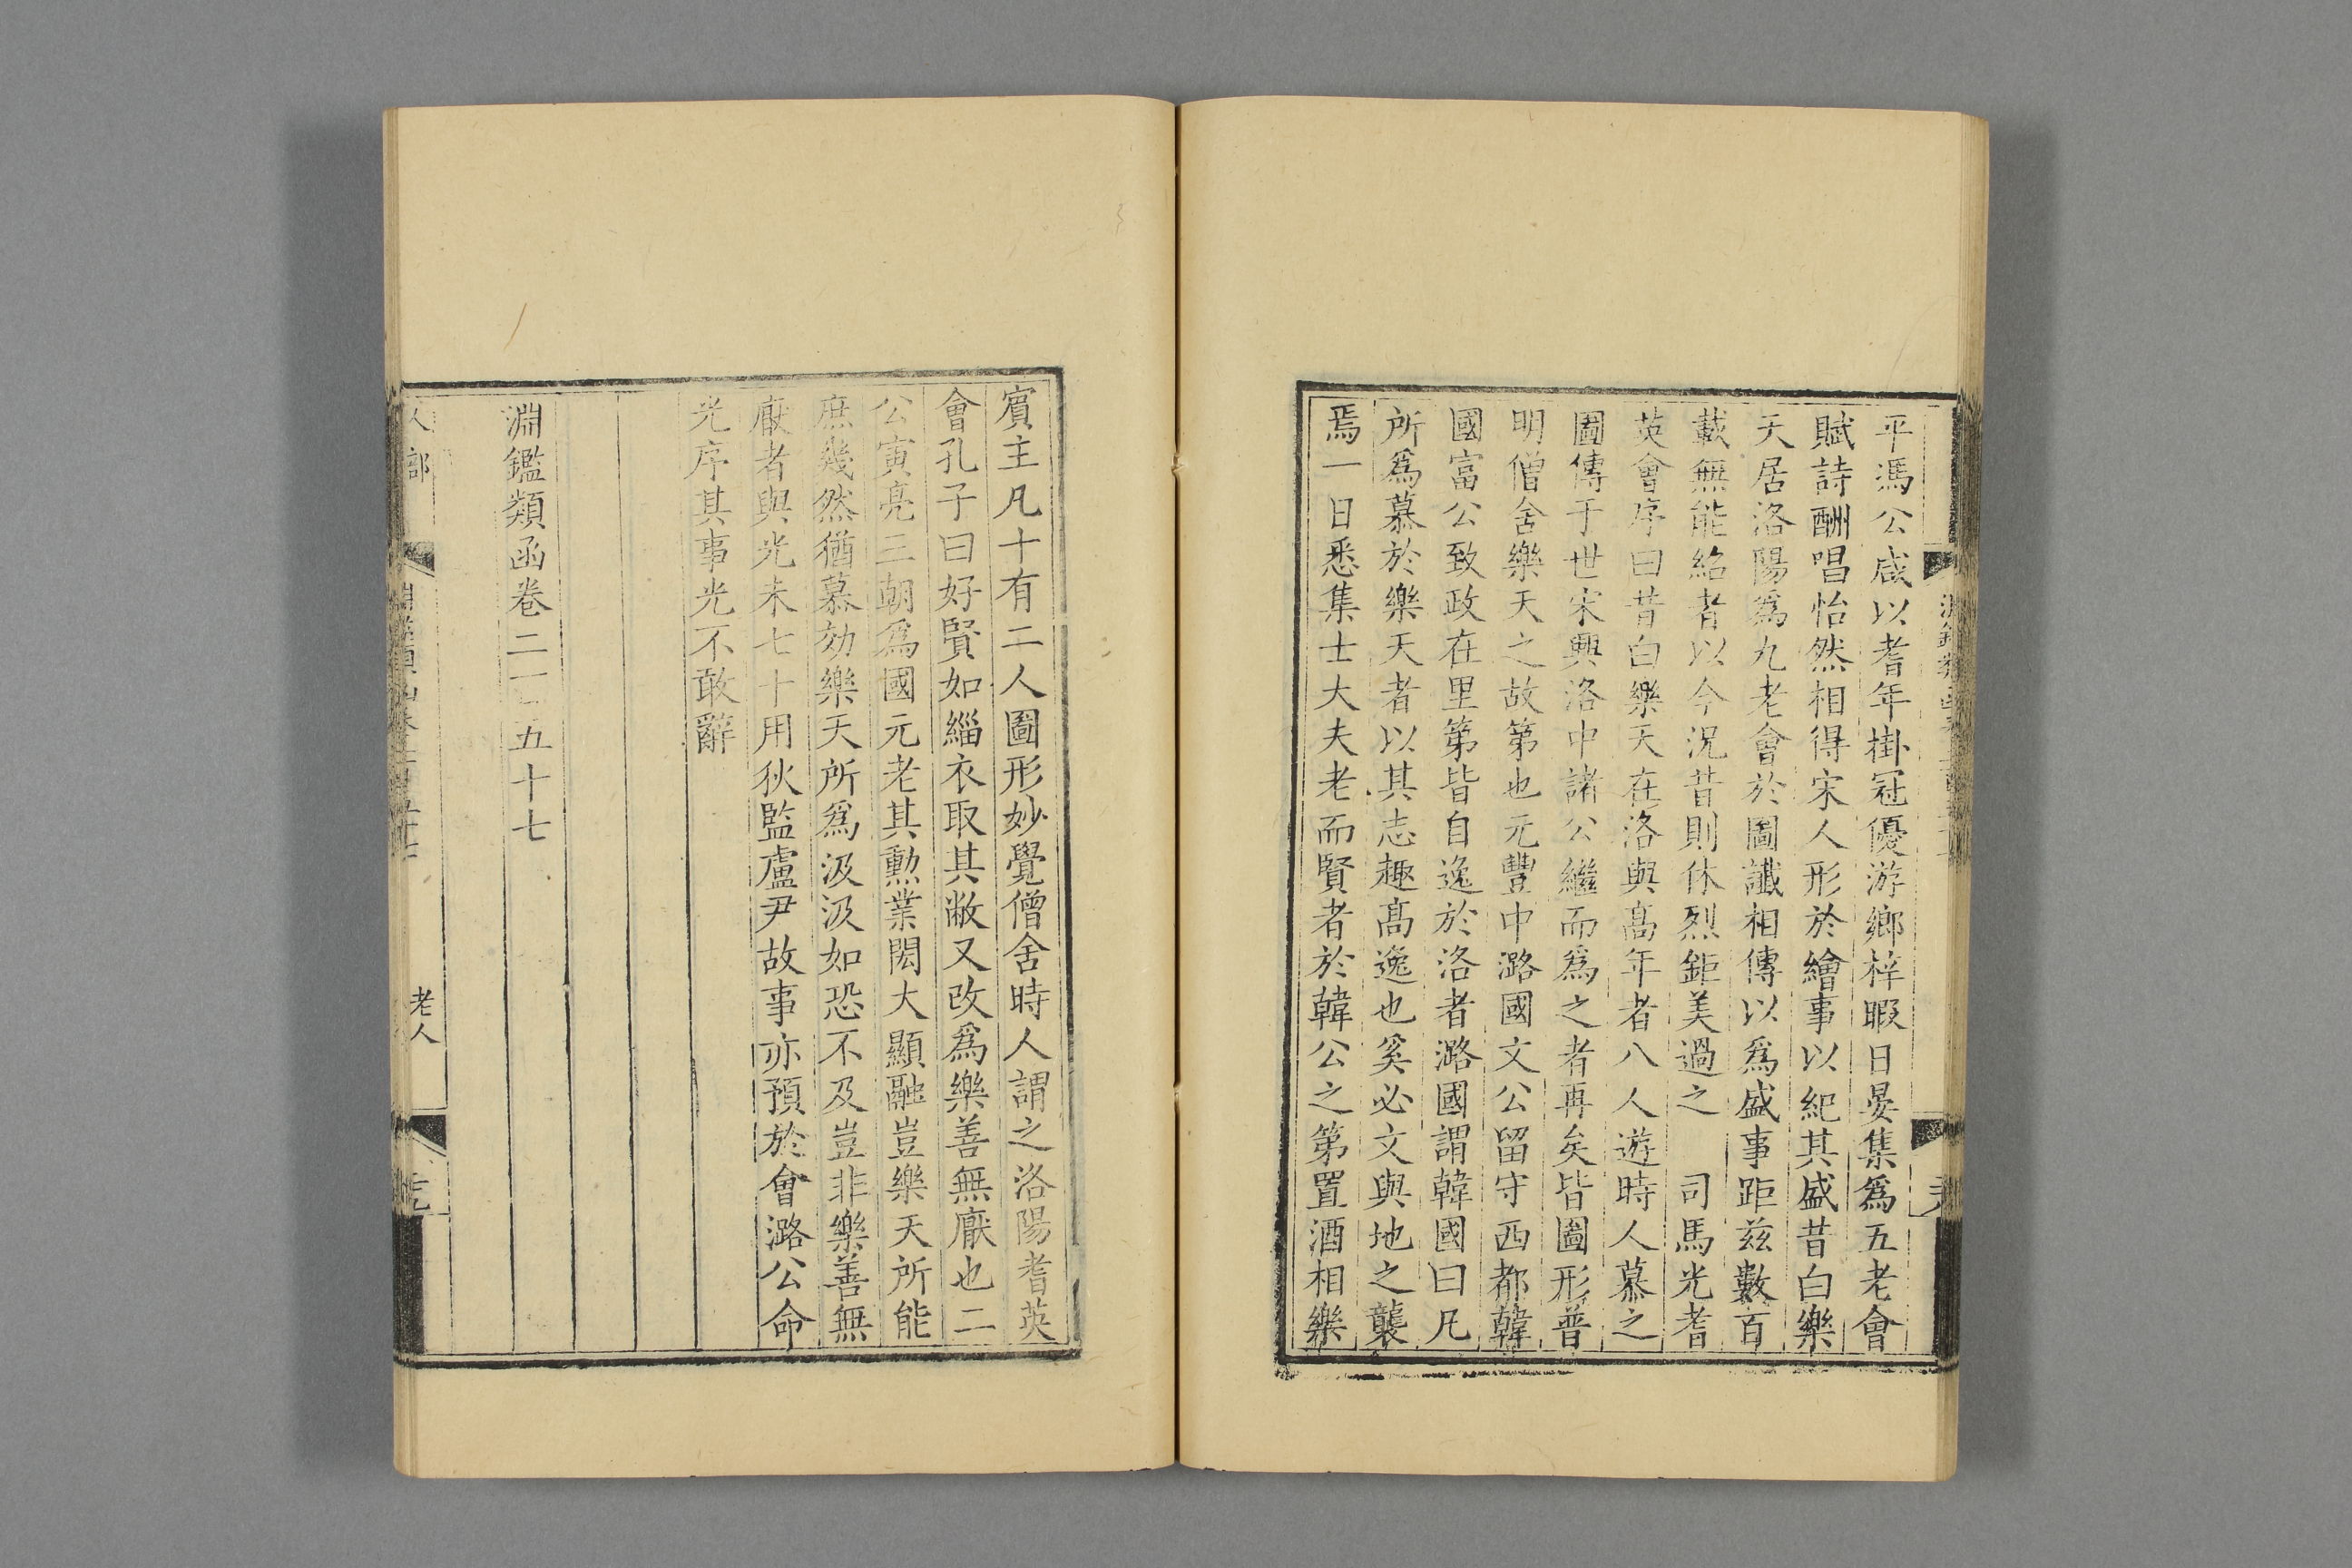 平馮公咸以耆年掛冠優游鄉梓暇日晏集爲五老會
賦詩酬唱怡然相得宋人形於繪事以紀其盛昔白樂
天居洛陽爲九老會於圖讖相傳以爲盛事距兹數百
載無能紹者以今況昔則休烈鉅美過之　司馬光耆
英會序曰昔白樂天在洛與高年者八人遊時人慕之
圖傳于世宋興洛中諸公繼而爲之者再矣皆圖形普
明僧舍樂天之故第也元豐中潞國文公留守西都韓
國富公致政在里第皆自逸於洛者潞國謂韓國曰凡
所爲慕於樂天者以其志趣高逸也奚必文與地之襲
焉一日悉集士大夫老而賢者於韓公之第置酒相樂
賓主凡十有二人圖形妙覺僧舍時人謂之洛陽耆英
會孔子曰好賢如緇衣取其敝又改爲樂善無厭也二
公寅亮三朝爲國元老其勳業閎大顯融豈樂天所能
庶幾然猶慕効樂天所爲汲汲如恐不及豈非樂善無
厭者與光未七十用狄監盧尹故事亦預於會潞公命
光序其事光不敢辭
淵鑑類函卷二百五十七
人部
老人